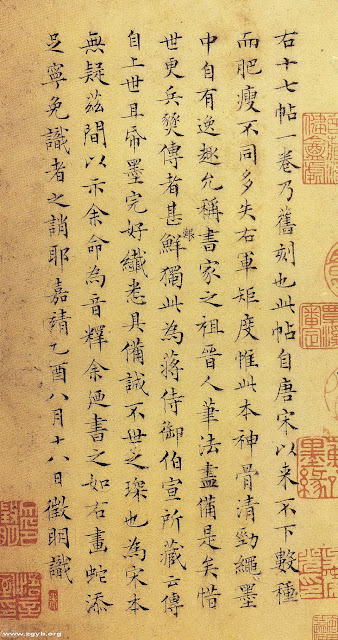 右十七帖一卷乃舊刻也此帖自唐宋以来不下數種
而肥瘦不同多失右軍矩度惟此本神骨清勁繩墨
中自有逸趣允稱書家之祖晉人筆法盡備是矣惜
世更兵燹傳者甚鮮獨此為蔣侍御伯宣所藏云傳
自上世且帋墨完好纖悉具備誠不世之琛也為宋本
無疑茲間以示余命為音釋余廼書之如右畫蛇添
足寧免識者之誚耶嘉靖乙酉八月十八日徵明識
www.zgyh.org